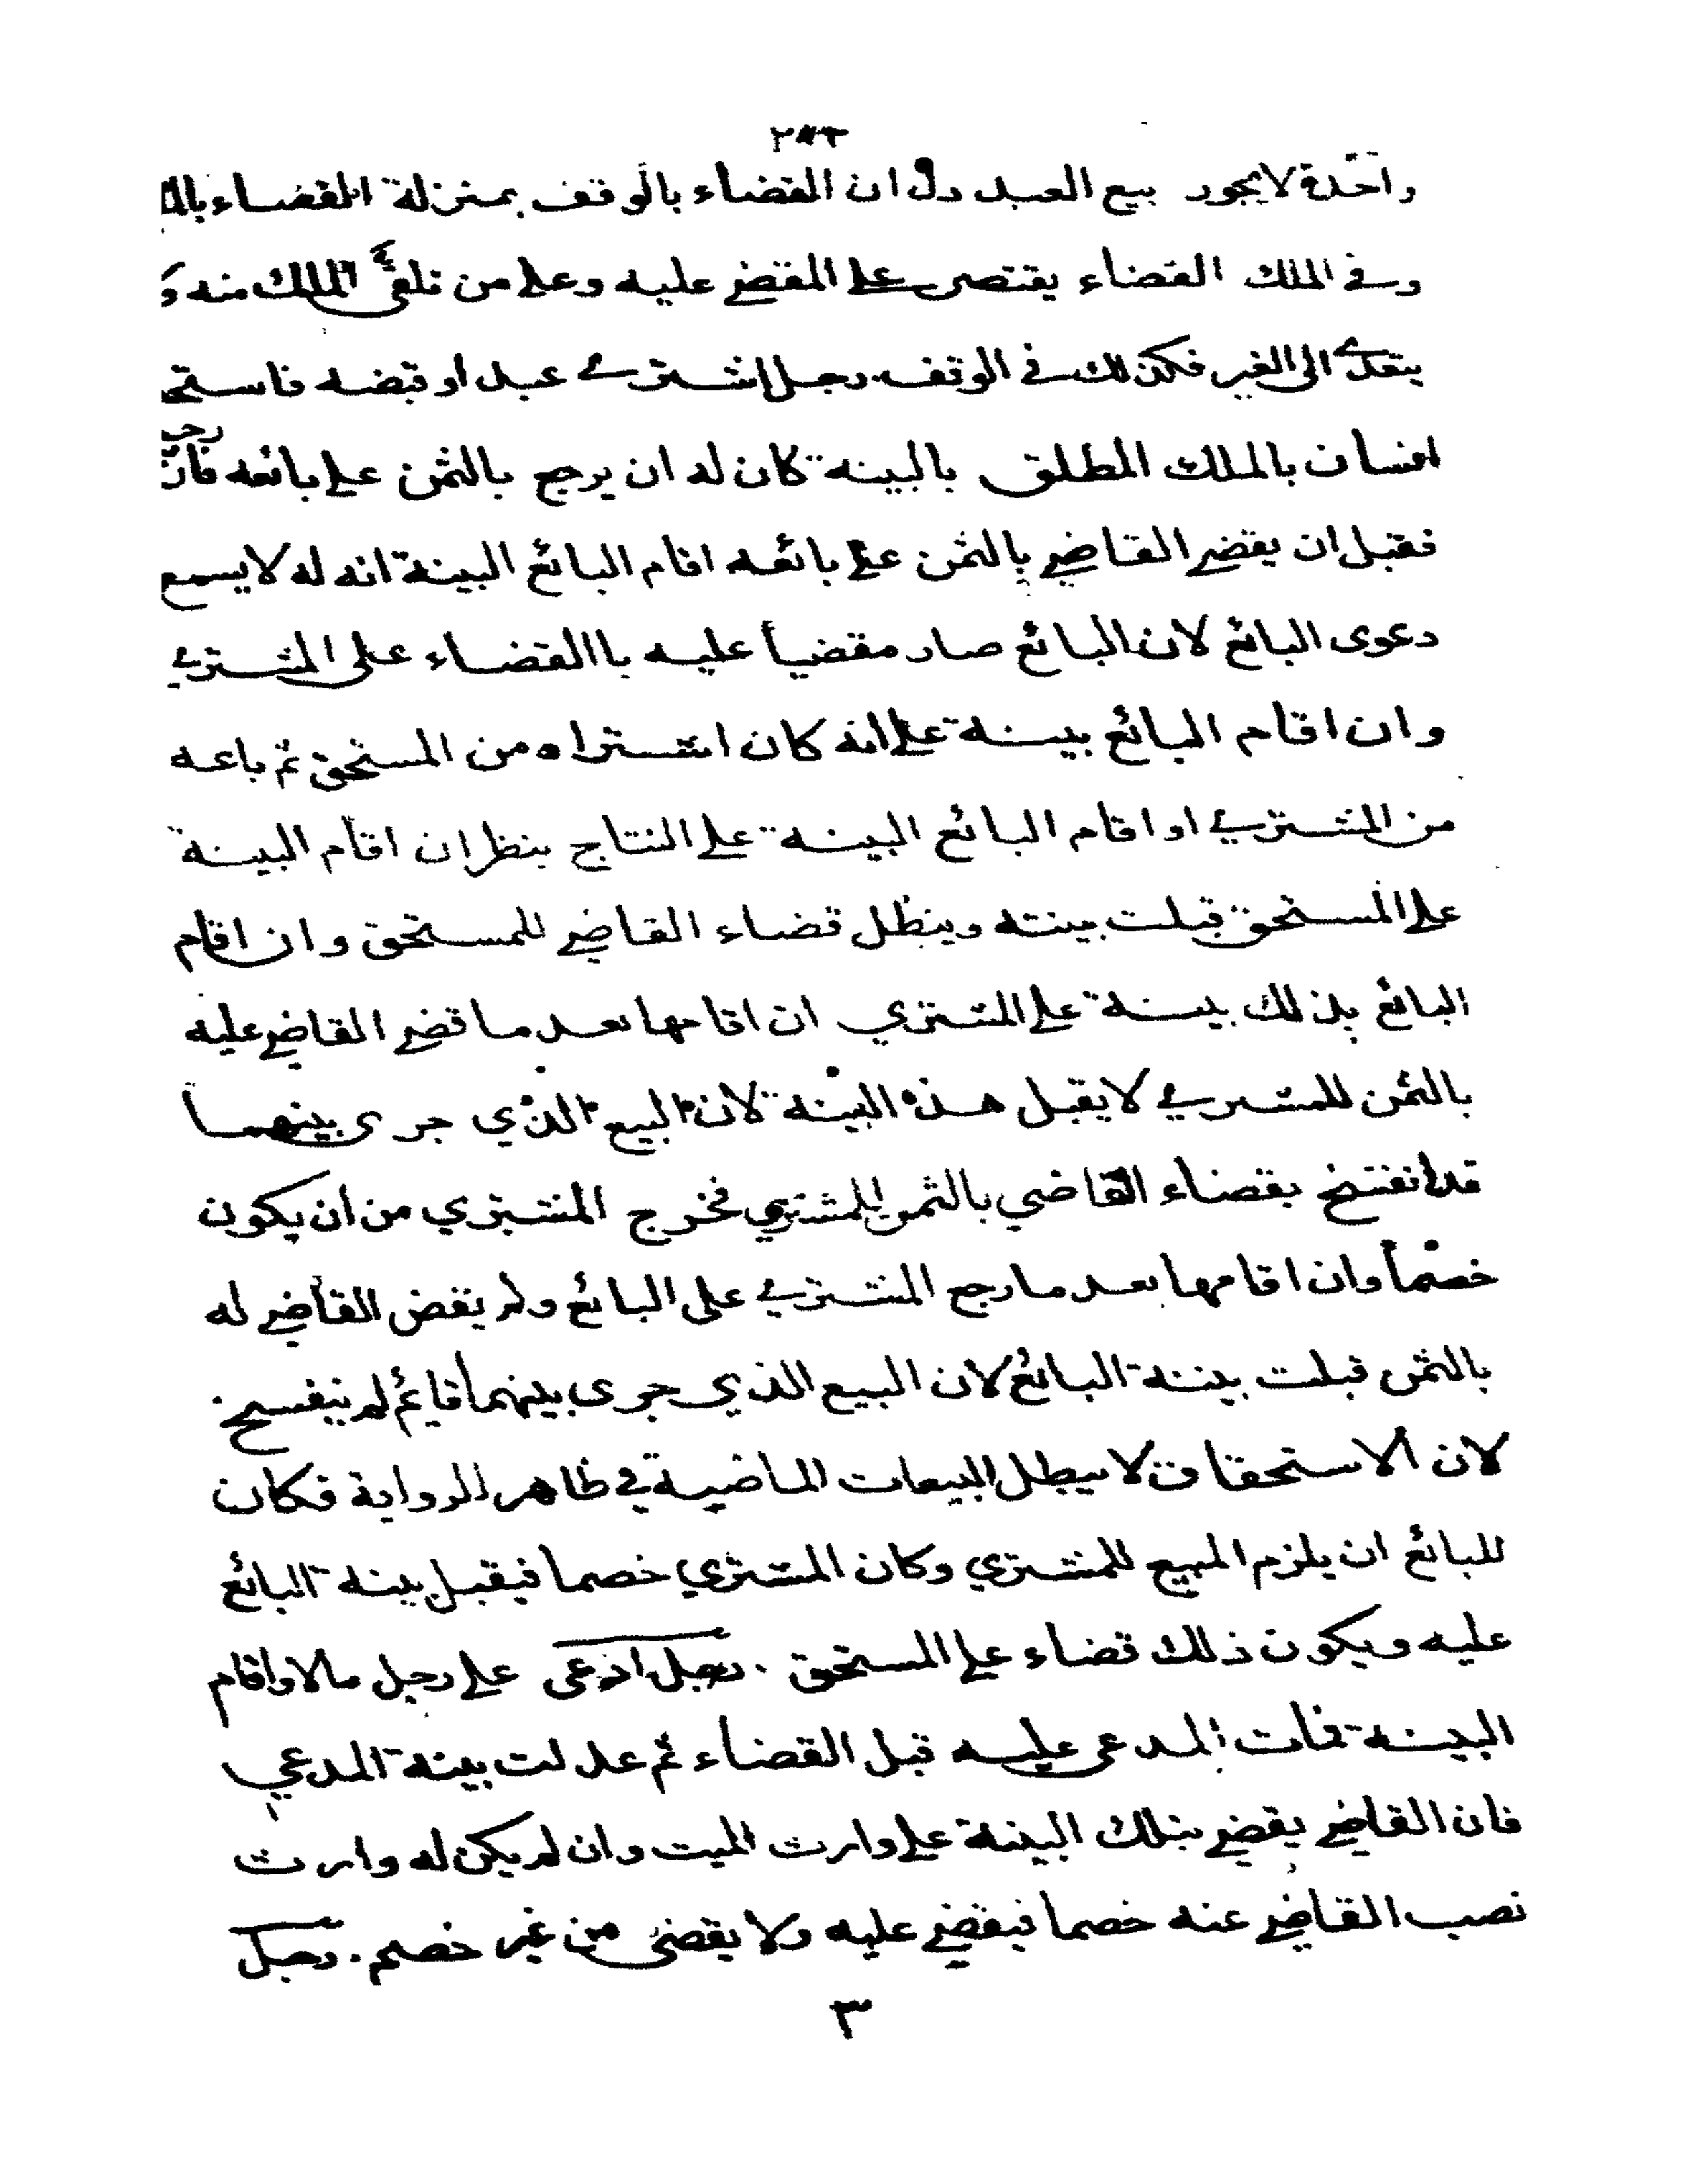 واحدة لا يجوز بيع العبد دل ان القضاء بالوقف بمنزلة القضاء
وفي الملك القضاء يقتصر على المقضي عليه وعلى من تلقى الملك منه
يتعدى الى الغير فكذلك في الوقف رجل اشترى عبدا وقبضه فاستحق
انسان بالملك المطلق بالبينة كان له ان يرجع بالثمن على بائعه فان رجع
فقبل ان يقضي القاضي بالثمن على بائعه اقام البائع البينة انه له لا يسمع
دعوى البائع لان البائع صار مقضياً عليه باالقضاء على المشتري
وان اقام البائع بينة على انه كان اشتراه من المستحق ثم باعه
من المشتري او اقام البائع البينة على النتاج ينظر ان اقام البينة
على المستحق قبلت بينته ويبطل قضاء القاضي للمستحق وان اقام
البائع بذلك بينة على المشتري ان اقامها بعد ما قضي القاضي عليه
بالثمن للمشتري لا يقبل هذه البينة لان البيع الذي جرى بينهما
قد انفسخ بقضاء القاضي بالثمن للمشتري فخرج المشتري من ان يكون
خصماً وان اقامها بعد ما رجع المشتري على البائع ولم يقض القاضي له
بالثمن قبلت بينة البائع لان البيع الذي جرى بينهما قائم لم ينفسخ
لان الاستحقاق لا يبطل البيعات الماضية في ظاهر الرواية فكان
للبائع ان يلزم المبيع للمشتري وكان المشتري خصما فيقبل بينة البائع
عليه ويكون ذلك قضاء على المستحق . رجل ادعى على رجل مالا واقام
البينة فمات المدعى عليه قبل القضاء ثم عدلت بينة المدعي
فان القاضي يقضي بتلك البينة على وارث الميت وان لم يكن له وارث
نصب القاضي عنه خصما فيقضي عليه ولا يقضى من غير خصم . رجل
٣